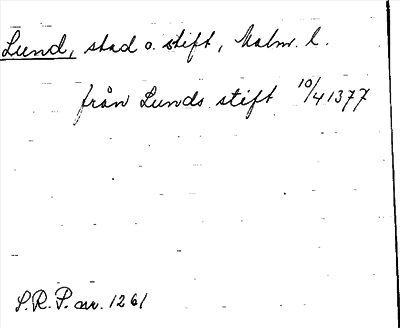 Lund, stad o. stift, Malm. l.
från Lunds stift 10/4 1377
S.R.P. nr. 1261